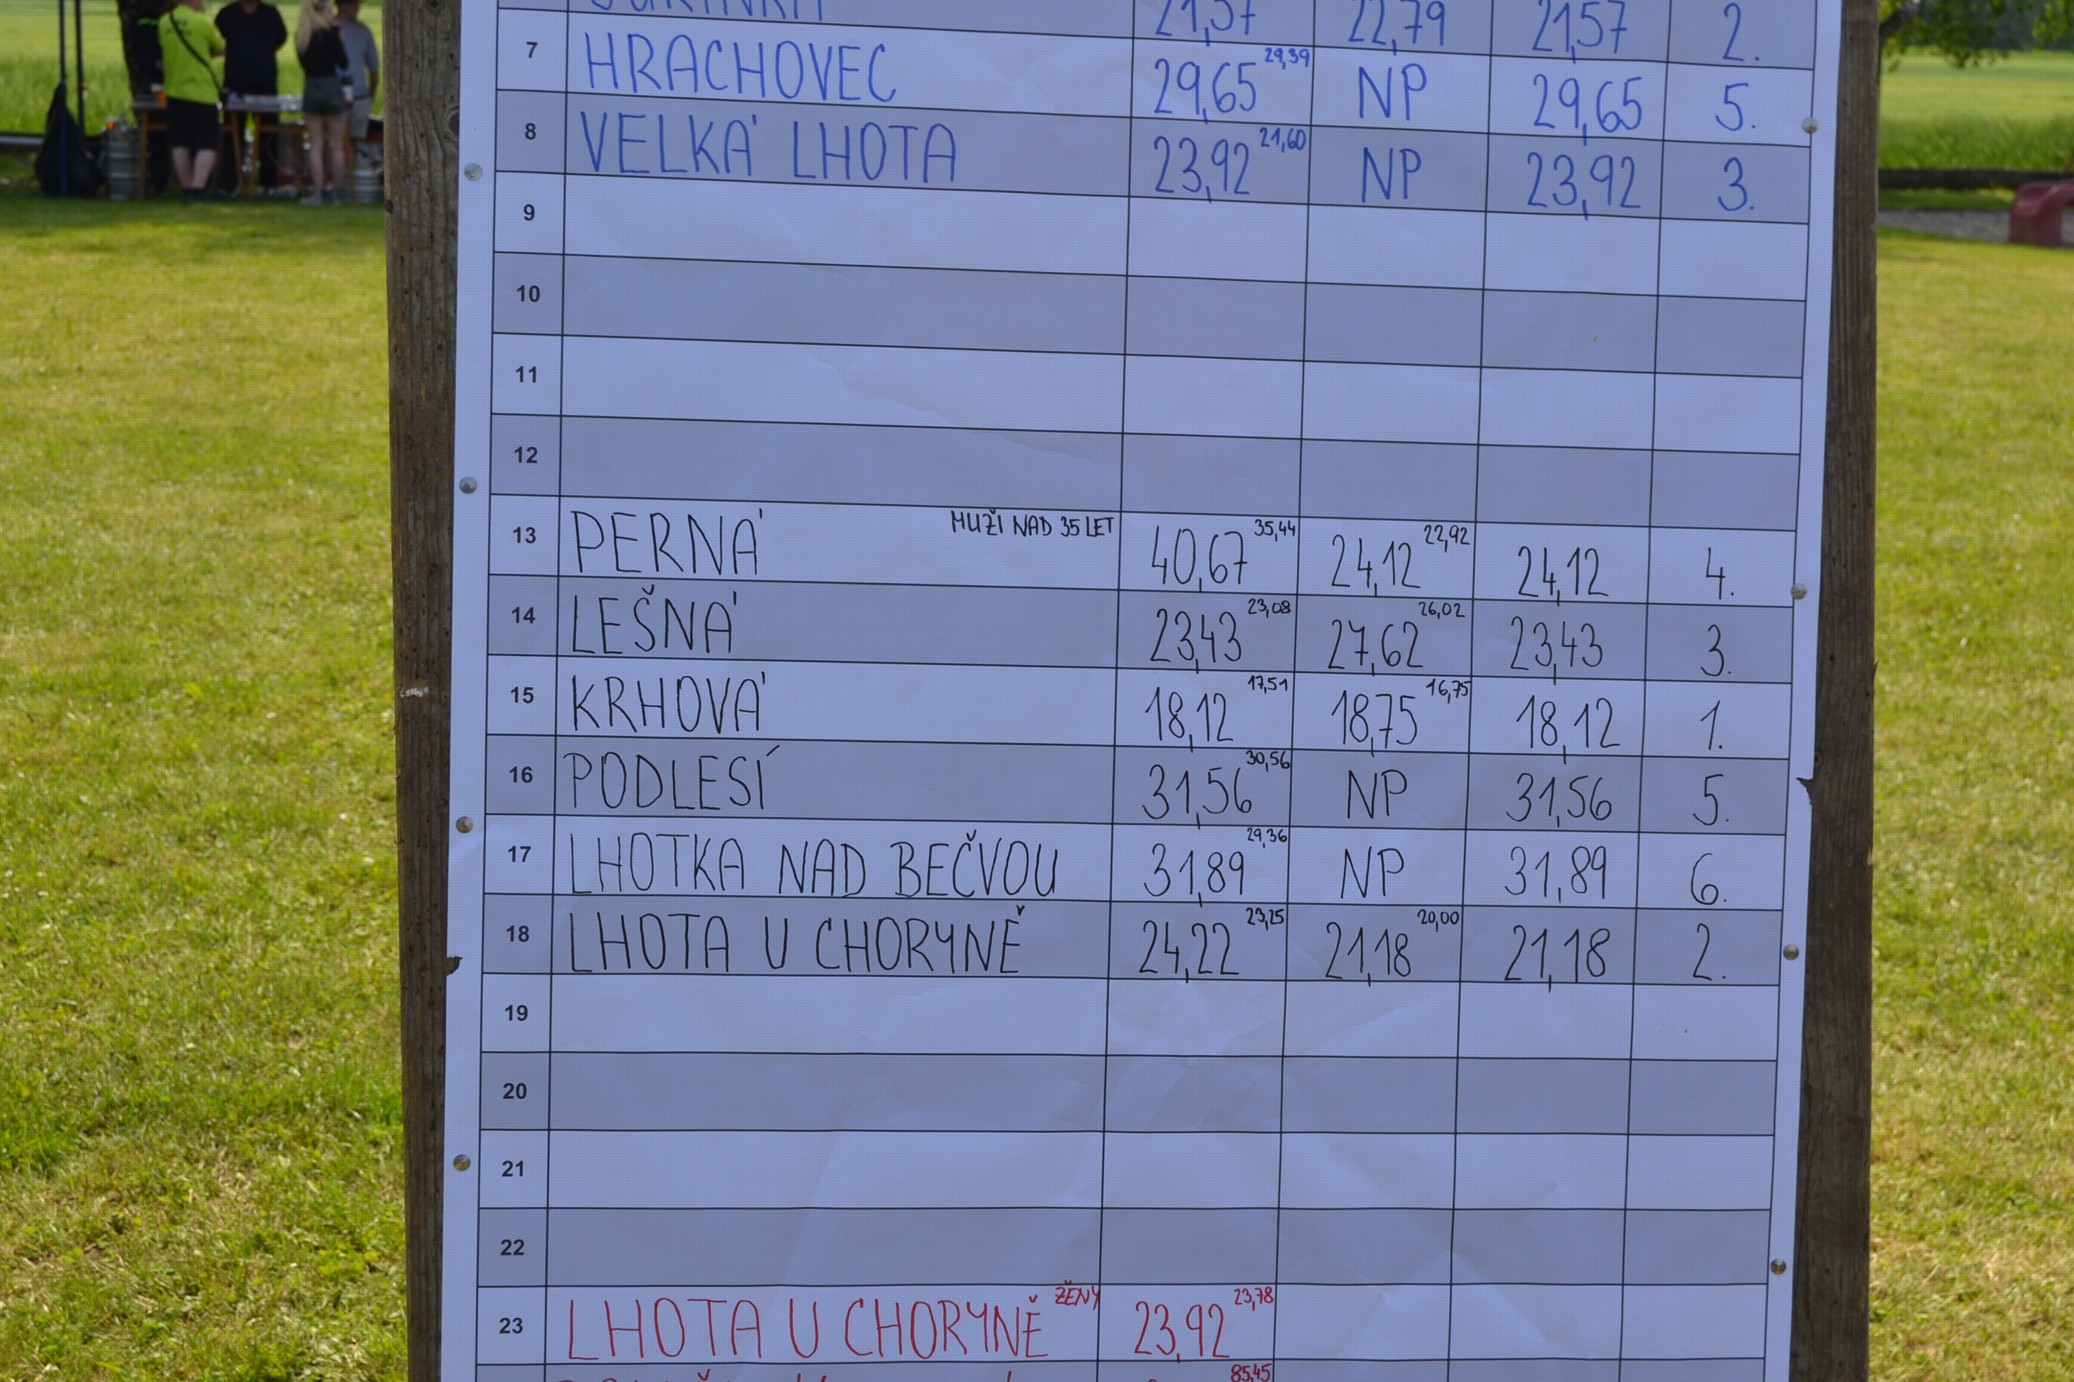 21,57 22,79 21,57 2.
7 HRACHOVEC 29,65 29,39 NP 29,65 5.
8 VELKÁ LHOTA 23,92 21,60 NP 23,92 3.
9
10
11
12
13 PERNÁ MUŽI NAD 35 LET 40,67 35,44 24,12 22,92 24,12 4.
14 LEŠNÁ 23,43 23,08 27,62 26,02 23,43 3.
15 KRHOVÁ 18,12 17,51 18,75 16,75 18,12 1.
16 PODLESÍ 31,56 30,56 NP 31,56 5.
17 LHOTKA NAD BEČVOU 31,89 29,36 NP 31,89 6.
18 LHOTA U CHORYNĚ 24,22 23,25 21,18 20,00 21,18 2.
19
20
21
22
23 LHOTA U CHORYNĚ ŽENY 23,92 23,78
85,45